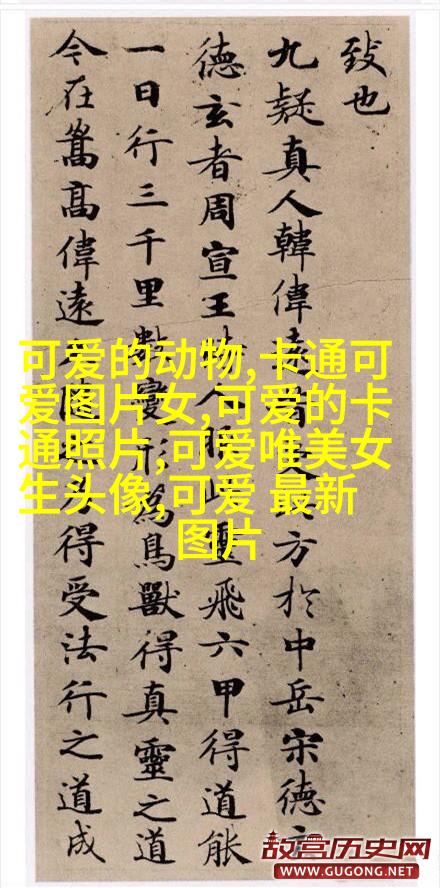 致也
九疑真人韓偉遠昔受方於中岳宋德玄
德玄者周宣王時人服此靈飛六甲得道能
一日行三千里數變形為鳥獸得真靈之道
今在嵩高偉遠隨得受法行之道成
可爱的动物,卡通可
爱图片女,可爱的卡
通照片,可爱唯美女
生头像,可爱 最新
图片
故宫历史网
WWW.GUGONG.NET